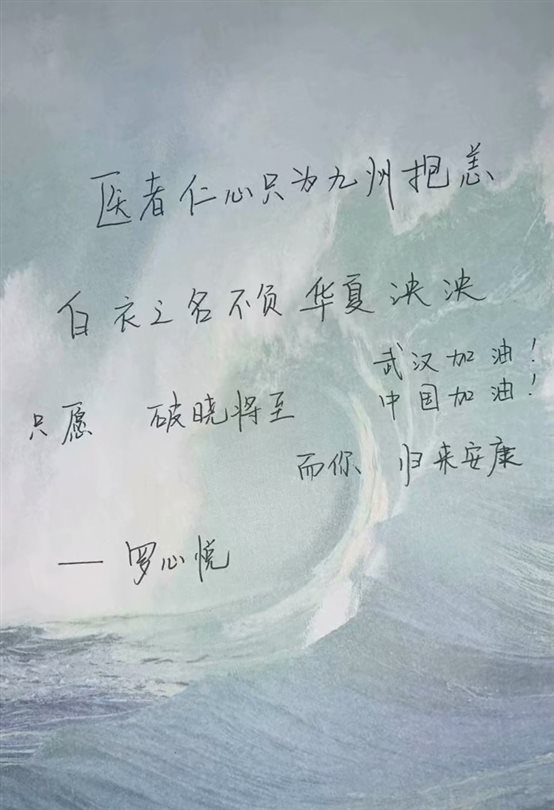 医者仁心只为九州抱恙
白衣之名不负华夏泱泱
武汉加油！
只愿 破晓将至
中国加油！
而你 归来安康
— 罗心悦